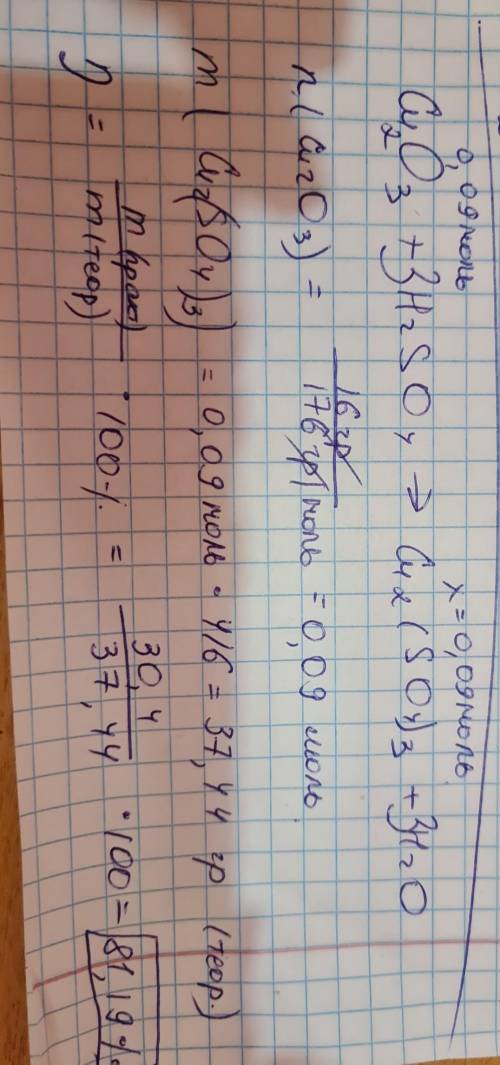 0,09 моль x = 0,09 моль
Cu₂O₃ + 3H₂SO₄ → Cu₂(SO₄)₃ + 3H₂O
n(Cu₂O₃) = 16 гр / 176 гр/моль = 0,09 моль
m(Cu₂(SO₄)₃) = 0,09 моль · 416 = 37,44 гр (теор.)
η = m(практ) / m(теор) · 100% = 30,4 / 37,44 · 100 = 81,19%